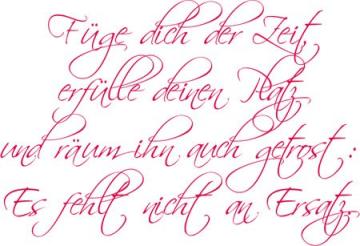 Füge dich der Zeit,
erfülle deinen Platz
und räum ihn auch getrost:
Es fehlt nicht an Ersatz.